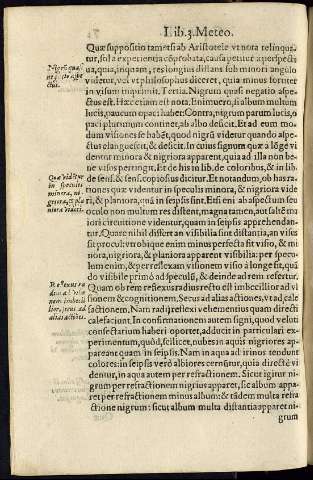 Lib.3. Meteo.
Quæ suppositio tametsi ab Aristotele vt nota relinqua-
tur, sola experientia cōprobata, causa petitur a perspecti
ua, quia, inquam, res longius distans sub minori angulo
videtur, vel vt philosophus diceret, quia minus fortiter
in visum inquinit. Tertia. Nigrum quasi negatio aspe-
ctus est. Hæc etiam est nota. Enimuero, si album multum
lucis, paucum opaci habet. Contra, nigrum parum lucis, o
paci plurimum continet, ab albo deficit. Et ad eum mo-
dum visiones se habēt, quod nigrū videtur quando aspe-
ctus elanguescit, & deficit. In cuius signum quæ a lōge vi
dentur minora & nigriora apparent, quia ad illa non be-
ne visus pertingit. Et de his in lib. de coloribus, & in lib.
de sens. & sens. copiosius dicitur. Et notandum, ob has ra-
tiones quæ videntur in speculis minora, & nigriora vide
ri, & planiora, quā in seipsis sint. Etsi eni ab aspectum seu
oculo non multum res distent, magna tamen, aut saltē ma
iori circuitione videntur, quam in seipsis apprehendan-
tur. Quare nihil differt an visibilia sint distantia, an visus
sit procul: vtrobique enim minus perfecta fit visio, & mi
nora, nigriora, & planiora apparent visibilia: per specu-
lum enim, & per reflexam visionem visio a longe fit, quā
do visibile primò ad speculū, & deinde ad rem refertur.
Quam ob rem reflexus radius recto est imbecillior ad vi
sionem & cognitionem. Secus ad alias actiones, vt ad cale
factionem. Nam radij reflexi vehementius quam directi
calefaciunt. In confirmationem autem signi, quod veluti
consectarium haberi oportet, adducit in particulari ex-
perimentum, quòd, scilicet, nubes in aquis nigriores ap-
pareant quam in seipsis. Nam in aqua ad irinos tendunt
colores: in seipsis verò albiores cernūtur, quia directè vi
dentur, in aqua autem per refractionem. Sicut igitur ni-
grum per refractionem nigrius apparet, sic album appa-
ret per refractionem minus album: & tādem multa refra
ctione nigrum: sicut album multa distantia apparet ni-
grum
Nigrū quasi
aspe
ctus.
Quæ vidētur
in speculis
minora, ni-
griora, & pla
niora
Reflexus ra
dius ad visio
nem imbecil-
lior, secus ad
alias actiones.